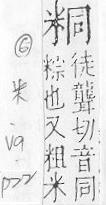 粡徒聾切音同
粽也又粗米
⑥ 米
va.
P22